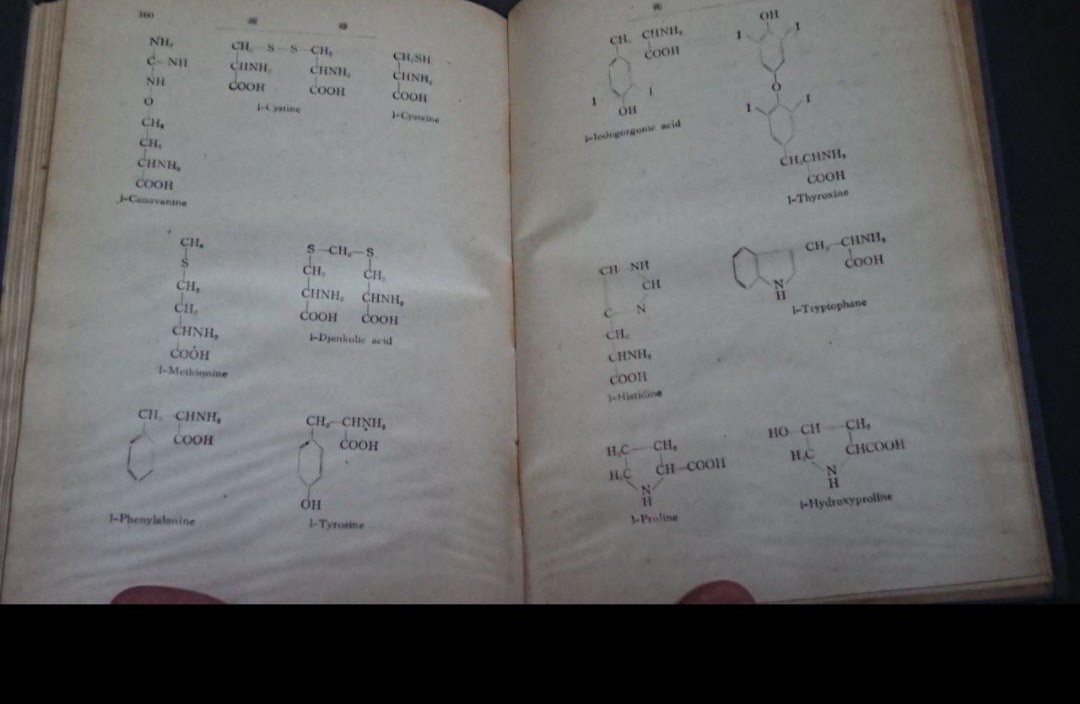 160
NH₂
C NH
NH
O
CH₂
CH₂
CHNH₂
COOH
l-Canavanine
CH₂ S S CH₂
CHNH₂ CHNH₂
COOH COOH
l-Cystine
CH₂SH
CHNH₂
COOH
l-Cysteine
CH₃
S
CH₂
CH₂
CHNH₂
COOH
l-Methionine
S CH₂ S
CH₂ CH₂
CHNH₂ CHNH₂
COOH COOH
l-Djenkolic acid
CH₂ CHNH₂
COOH
l-Phenylalanine
CH₂ CHNH₂
COOH
OH
l-Tyrosine
CH₂ CHNH₂
COOH
I I
OH
l-Iodogorgonic acid
OH
I I
O
I I
CH₂CHNH₂
COOH
l-Thyroxine
CH NH
CH
C N
CH₂
CHNH₂
COOH
l-Histidine
CH₂ CHNH₂
COOH
N
H
l-Tryptophane
H₂C CH₂
H₂C CH COOH
N
H
l-Proline
HO CH CH₂
H₂C CHCOOH
N
H
l-Hydroxyproline